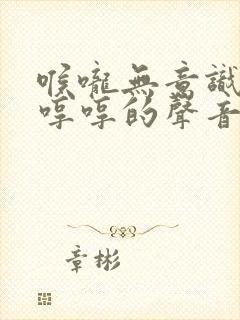 喉嚨無意識
哼哼的聲音
章彬